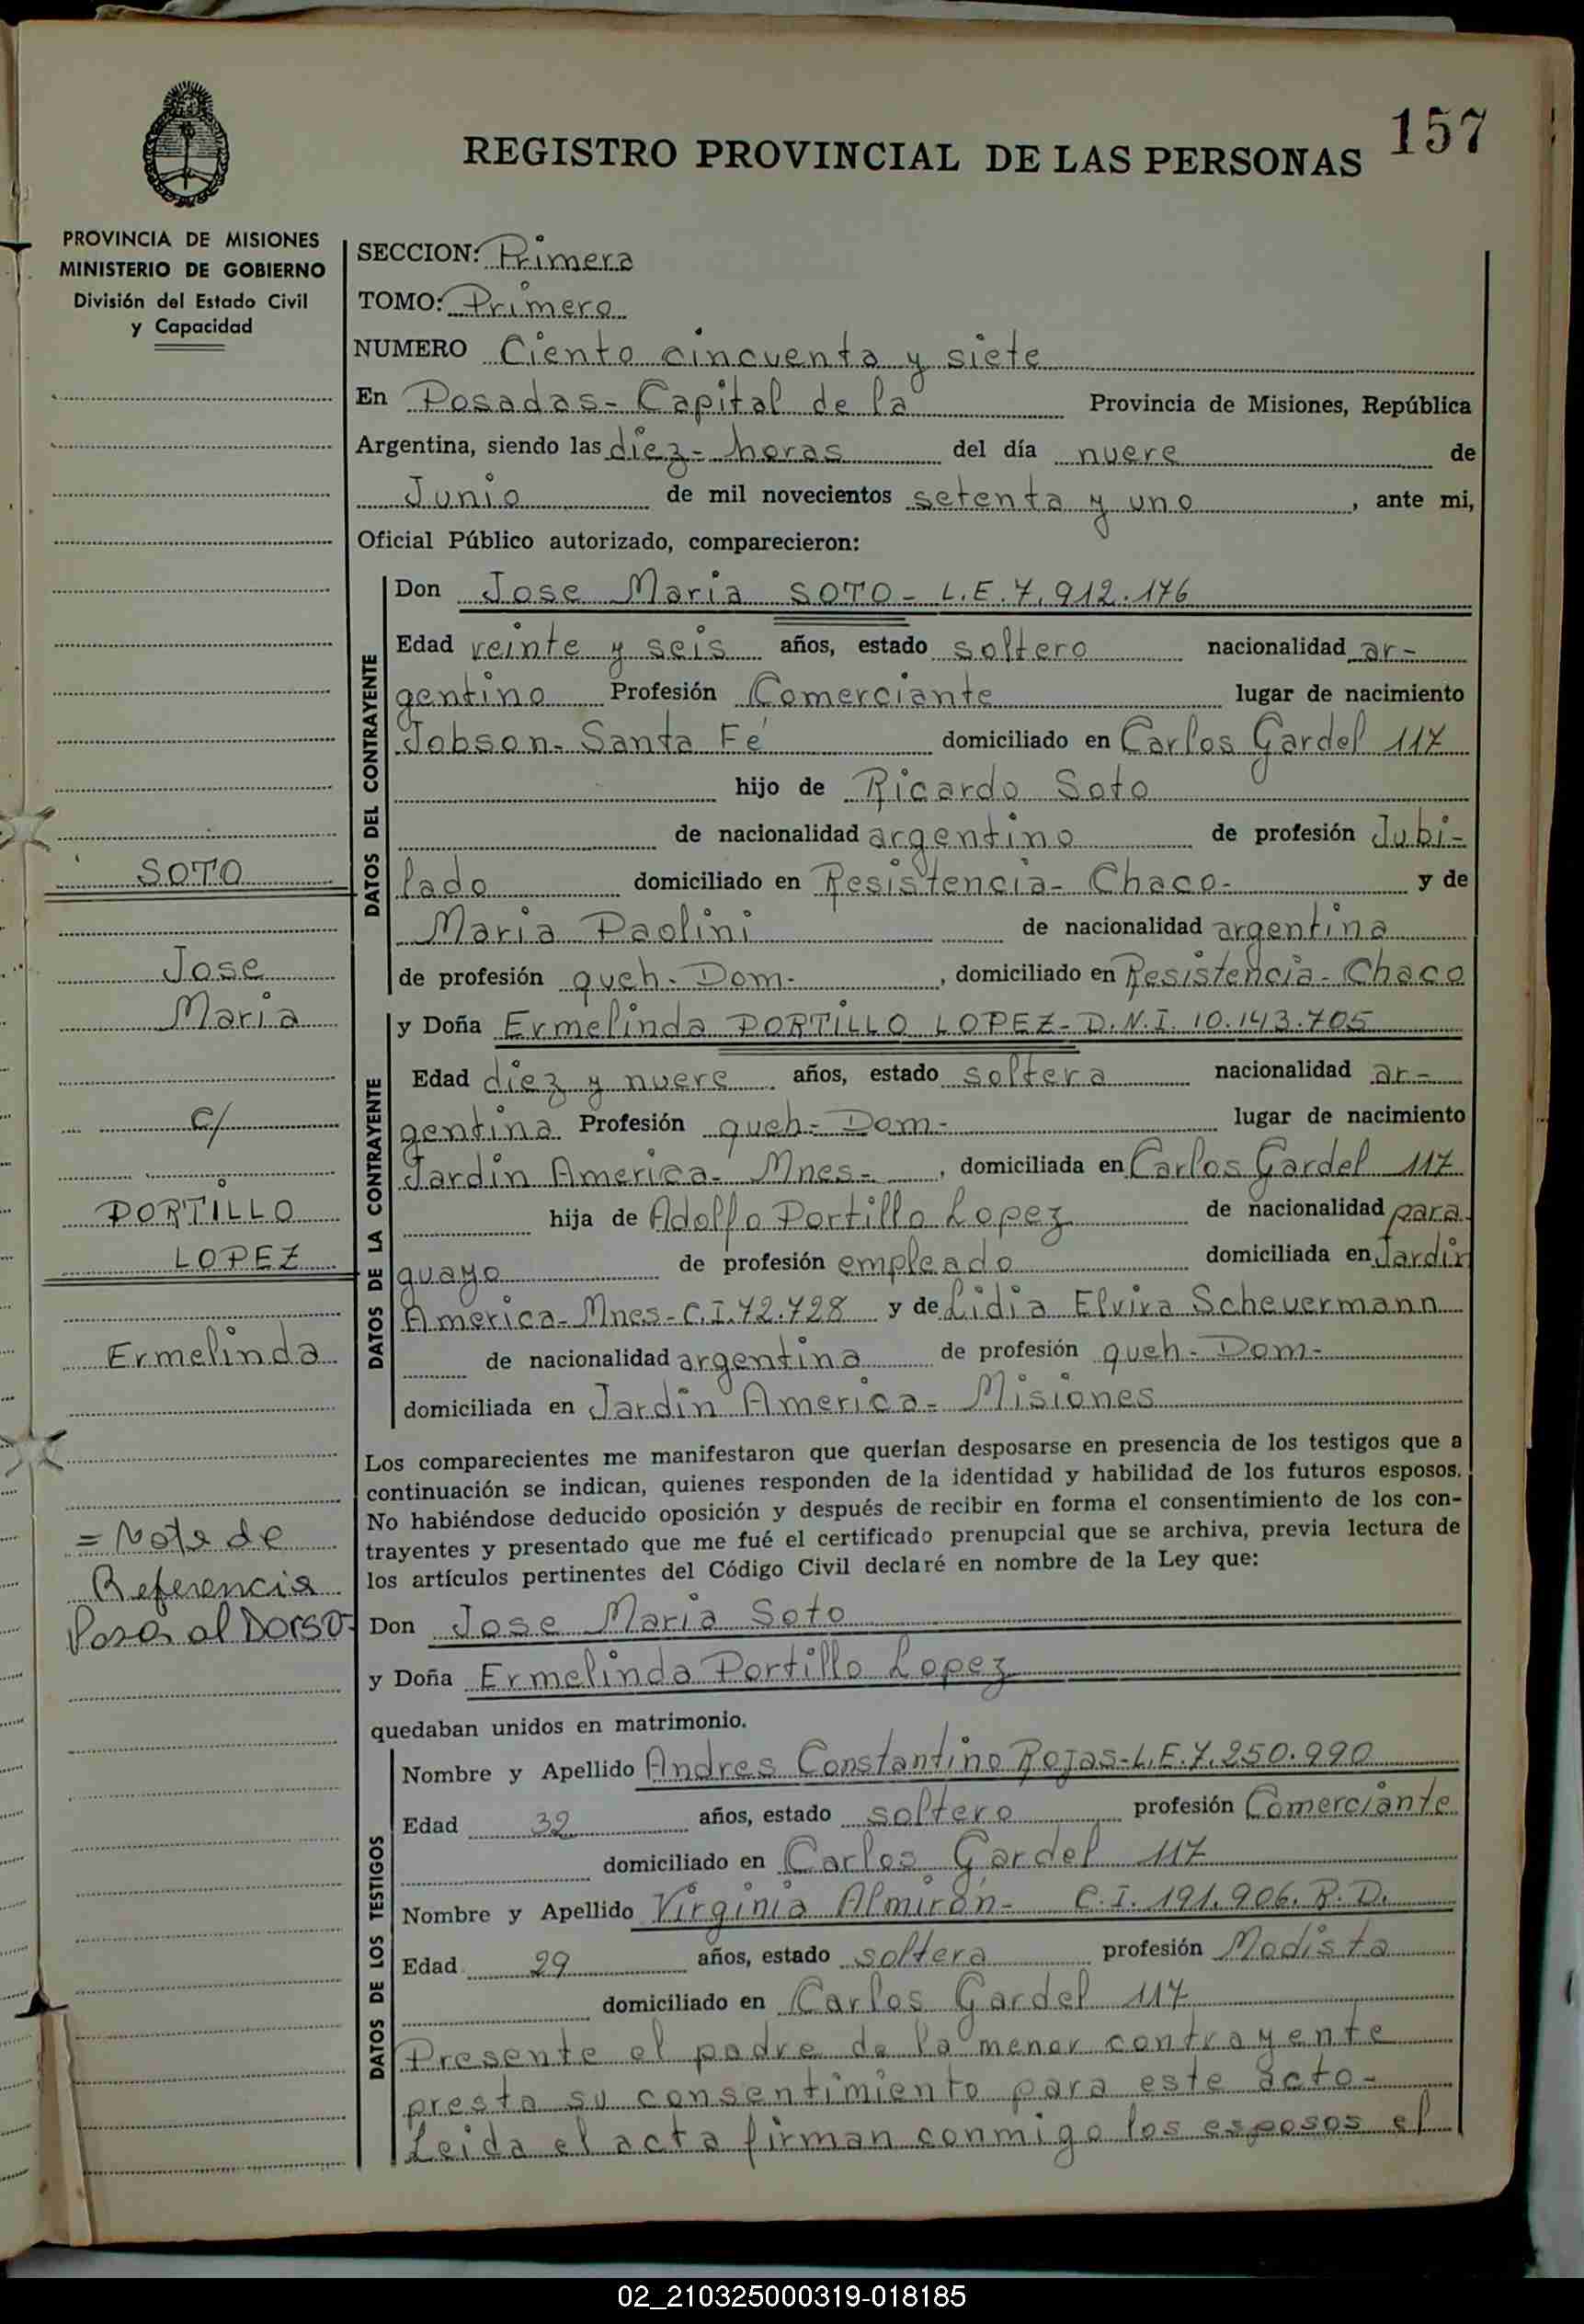 157
REGISTRO PROVINCIAL DE LAS PERSONAS
PROVINCIA DE MISIONES
MINISTERIO DE GOBIERNO
División del Estado Civil
y Capacidad
SOTO
Jose
Maria
c/
PORTILLO
LOPEZ
Ermelinda
= Nota de
Referencia
Pasa al Dorso-
SECCION: Primera
TOMO: Primero
NUMERO Ciento cincuenta y siete
En Posadas - Capital de la Provincia de Misiones, República
Argentina, siendo las diez - horas del día nueve de
Junio de mil novecientos setenta y uno, ante mi,
Oficial Público autorizado, comparecieron:
DATOS DEL CONTRAYENTE
Don Jose Maria SOTO - L.E. 7.912.176
Edad veinte y seis años, estado soltero nacionalidad ar-
gentino Profesión Comerciante lugar de nacimiento
Jobson - Santa Fé domiciliado en Carlos Gardel 117
hijo de Ricardo Soto
de nacionalidad argentino de profesión Jubi-
lado domiciliado en Resistencia - Chaco - y de
Maria Paolini de nacionalidad argentina
de profesión queh - Dom -, domiciliado en Resistencia - Chaco
DATOS DE LA CONTRAYENTE
y Doña Ermelinda PORTILLO LOPEZ - D.N.I. 10.143.705
Edad diez y nueve años, estado soltera nacionalidad ar-
gentina Profesión queh - Dom - lugar de nacimiento
Jardin America - Mnes -, domiciliada en Carlos Gardel 117
hija de Adolfo Portillo Lopez de nacionalidad para
guayo de profesión empleado domiciliada en Jardin
America - Mnes - C.I. 72.728 y de Lidia Elvira Scheuermann
de nacionalidad argentina de profesión queh - Dom -
domiciliada en Jardin America - Misiones
Los comparecientes me manifestaron que querían desposarse en presencia de los testigos que a
continuación se indican, quienes responden de la identidad y habilidad de los futuros esposos.
No habiéndose deducido oposición y después de recibir en forma el consentimiento de los con-
trayentes y presentado que me fué el certificado prenupcial que se archiva, previa lectura de
los artículos pertinentes del Código Civil declaré en nombre de la Ley que:
Don Jose Maria Soto
y Doña Ermelinda Portillo Lopez
quedaban unidos en matrimonio.
DATOS DE LOS TESTIGOS
Nombre y Apellido Andres Constantino Rojas - L.E. 7.250.990
Edad 32 años, estado soltero profesión Comerciante
domiciliado en Carlos Gardel 117
Nombre y Apellido Virginia Almirón - C.I. 191.906. R.D.
Edad 29 años, estado soltera profesión Modista
domiciliado en Carlos Gardel 117
Presente el padre de la menor contrayente
presta su consentimiento para este acto -
Leida el acta firman conmigo los esposos el
02_210325000319-018185